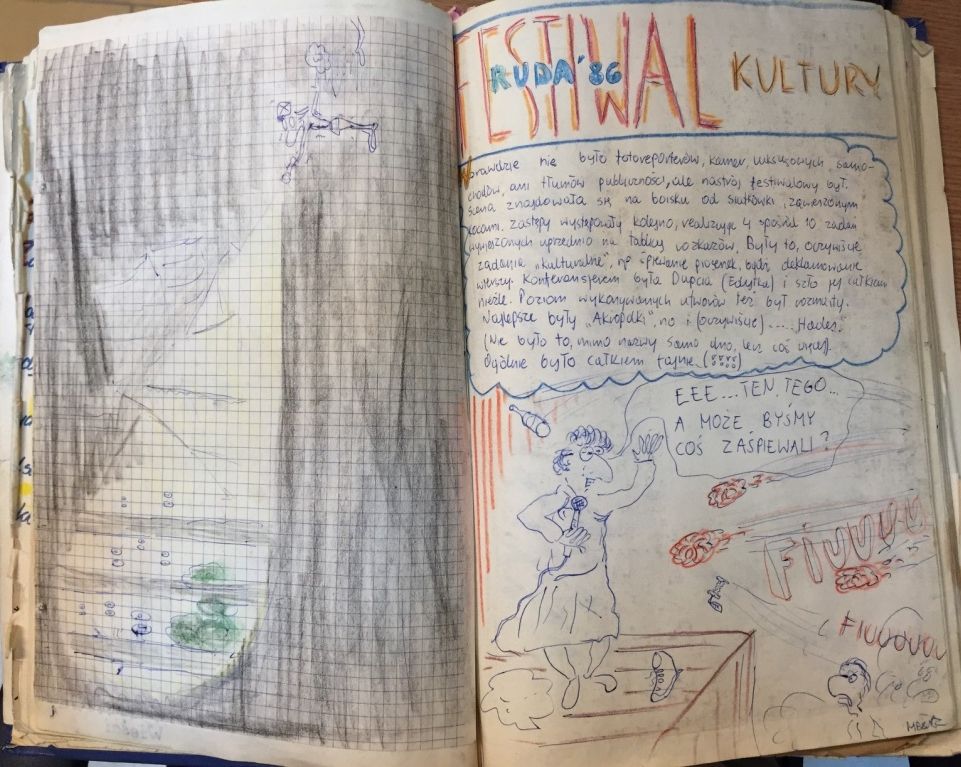 FESTIWAL
RUDA '86
KULTURY
Wprawdzie nie było fotoreporterów, kamer, luksusowych samo-
chodów, ani tłumów publiczności, ale nastrój festiwalowy był.
Scena znajdowała się na boisku od siatkówki, zawieszonym
kocami. Zastępy występowały kolejno, realizując 4 spośród 10 zadań
wywieszonych uprzednio na tablicy rozkazów. Były to, oczywiście
zadania „kulturalne", np śpiewanie piosenek, bądź deklamowanie
wierszy. Konferansjerem była Dupcia (Edytka) i szło jej całkiem
nieźle. Poziom wykonywanych utworów też był rozmaity.
Najlepsze były „Akropolki", no i (oczywiście) .... Hades.
(Nie było to, mimo nazwy samo dno, lecz coś więcej)
Ogólnie było całkiem fajnie. (
EEE...TEN TEGO...
A MOŻE BYŚMY
COŚ ZAŚPIEWALI?
FIUUUU
FIUUUUUU